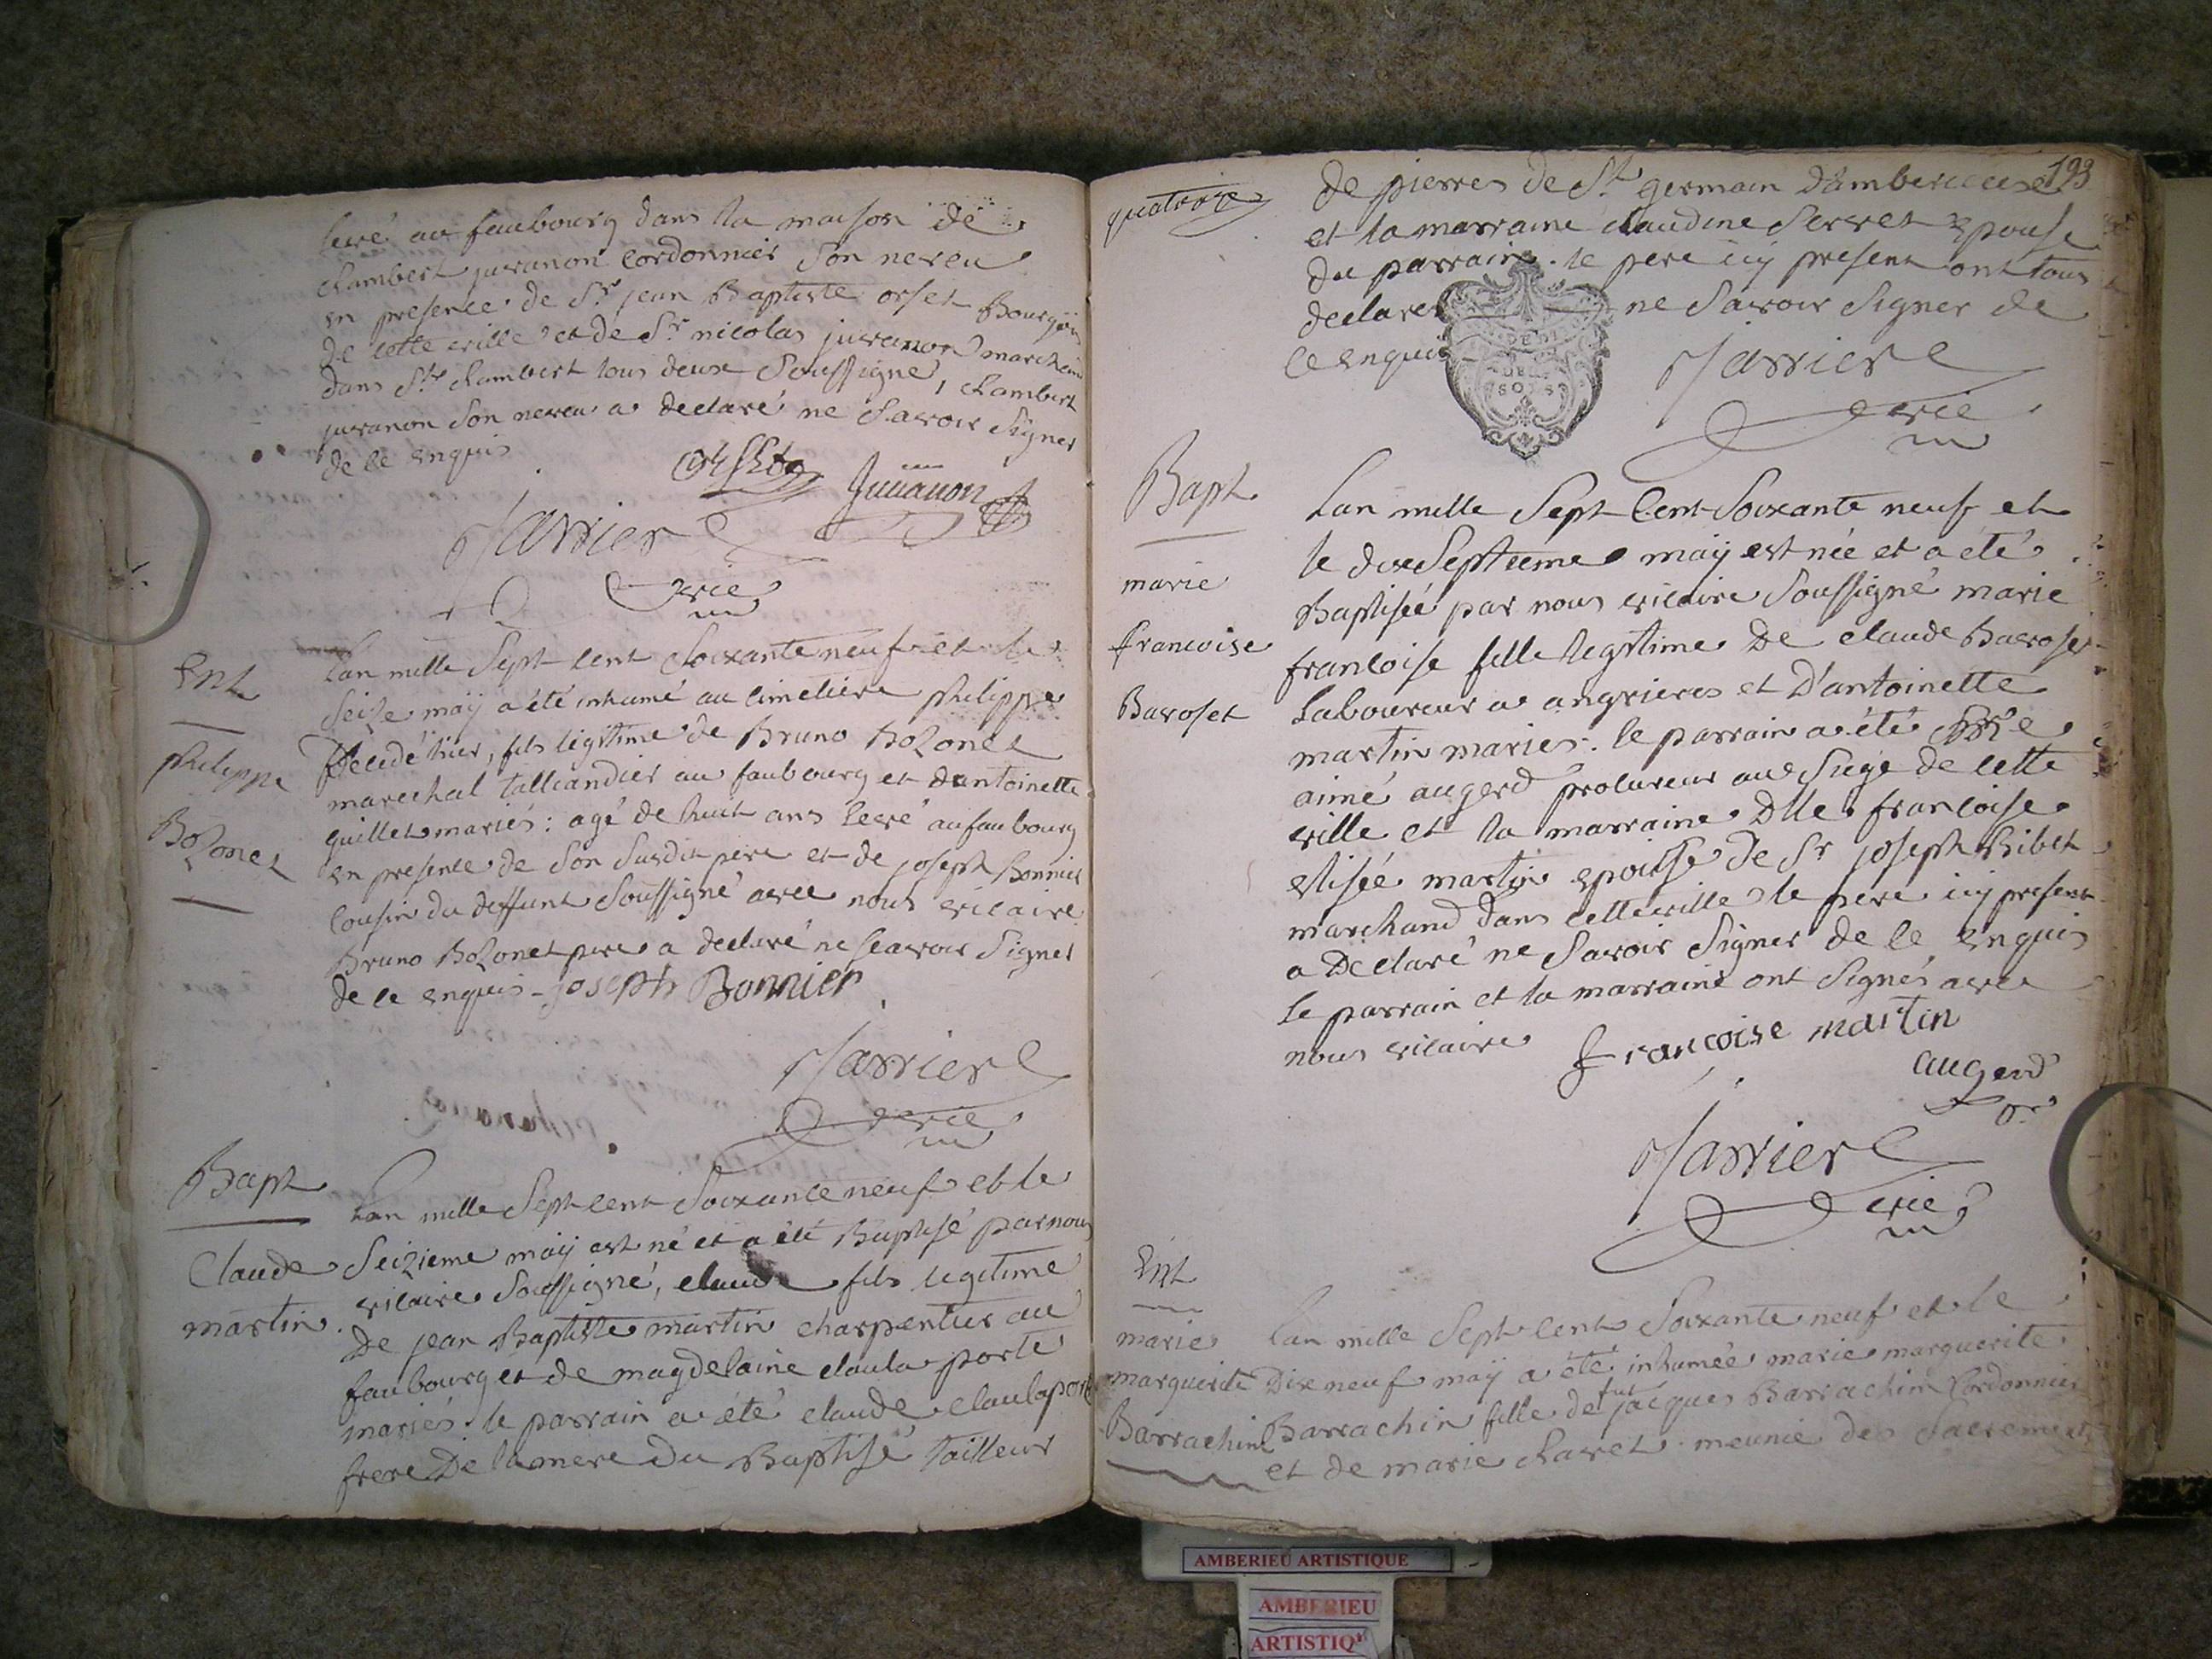 levé au faubourg dans la maison de
chambert juvanon cordonnier son neveu
en presence de Sr. jean Baptiste orset Bourgeois
de cette ville et de Sr nicolas juvanon marchand
dans St. Rambert tous deux soussigné, chambert
juvanon son neveu a declaré ne savoir signer
de ce enquis
orset Juvanon
Jarrier
vic
Ent
philippe
Bozonet
Lan mille sept cent soixante neuf et le
seize maÿ a été inhumé au cimetiere philippe
decedé hier, fils legitime de Bruno Bozonet
marechal talliandier au faubourg et dantoinette
quillet mariés: agé de huit ans levé au faubourg
en presence de son susdit pere et de joseph Bonnier
cousin du deffunt soussigné avec nous vicaire
Bruno Bozonet pere a declaré ne scavoir signer
de ce enquis - joseph Bonnier
Jarrier
vic
Bapt
Claude
martin
Lan mille sept cent soixante neuf et le
seizieme maÿ est né et a été Baptisé par nous
vicaire soussigné, claude fils legitime
de jean Baptiste martin charpentier au
faubourg et de magdelaine claula porte
mariés. le parrain a été claude claulaporte
frere de la mere du Baptisé tailleur
193
quatorze
de pierres de St germain d'amberieu
et la marraine claudine Serret Epouse
du parrain. le pere icy present ont tous
declarés ne savoir signer de
ce enquis
Jarrier
vic
Bapt
marie
francoise
Bavoset
Lan mille sept cent soixante neuf et
le dixseptieme maÿ est née et a été
Baptisée par nous vicaire soussigné marie
francoise fille legitime de claude Bavoset
Laboureur a angrieres et d'antoinette
martin mariés. le parrain a été
aimé augerd procureur au siege de cette
ville et la marraine Dlle francoise
elisée martin epouse de Sr joseph Ribet
marchand dans cette ville le pere icy present
a declaré ne savoir signer de ce enquis
le parrain et la marraine ont signés avec
nous vicaire françoise martin
augerd
Jarrier
vic
Ent
marie
marguerite
Barrachin
Lan mille sept cent soixante neuf et le
dixneuf maÿ a été inhumée marie marguerite
Barrachin fille de fut jacques Barrachin cordonnier
et de marie charvet. meunie des sacrements
AMBERIEU ARTISTIQUE
AMBERIEU
ARTISTIQ